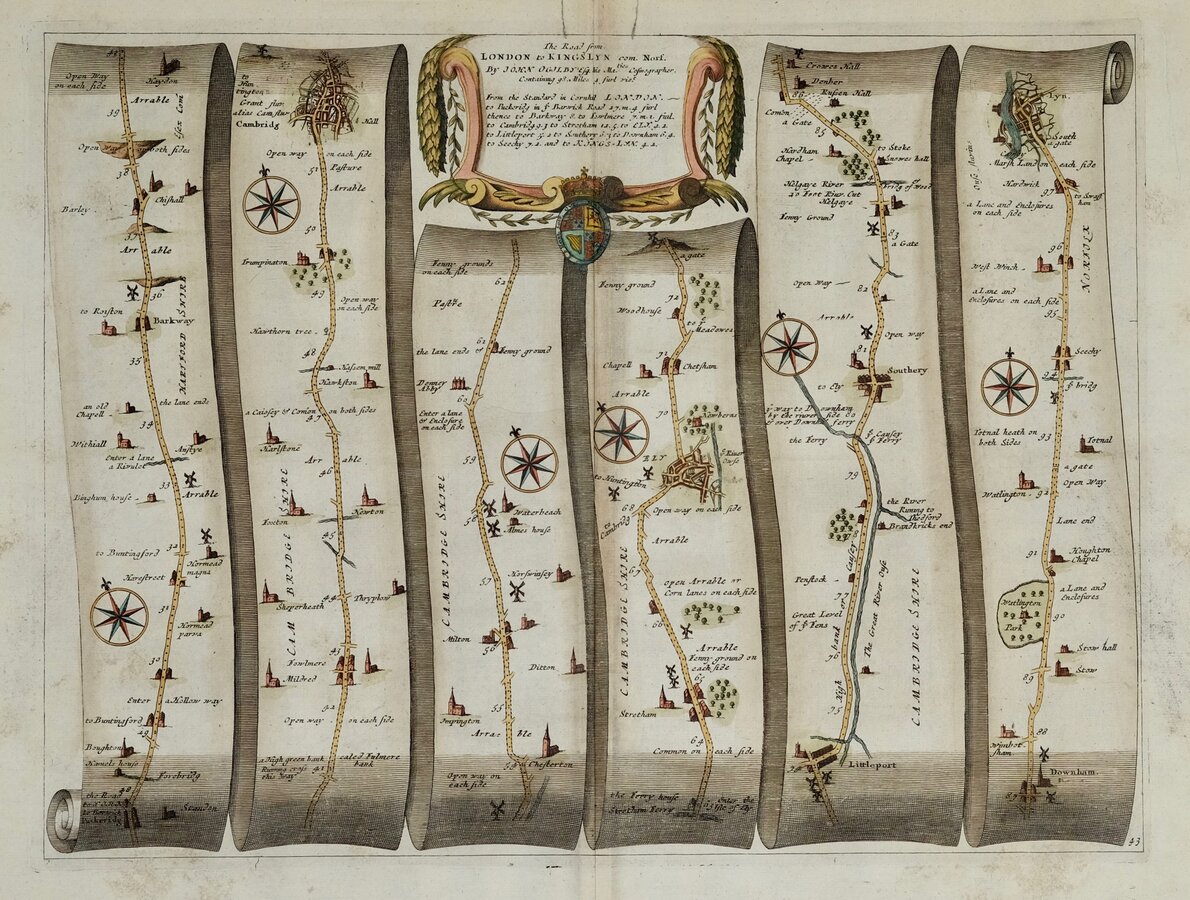 The Road from
LONDON to KINGSLYN com. Norf.
By JOHN OGILBY Esq. his Ma:ties Cosmographer.
Containing 98 Miles 4 furl
From the Standard in Cornhill LONDON.
to Puckeridg in ye Barwick Road 27.m.4 furl
thence to Barkway 8. to fowlmere 7.m.2 furl
to Cambridg.9.3 to Stretham 12.5. to ELY.4.2.
to Littleport 5.2 to Southery 6.3 to Downham 6.4.
to Seechy 7.2. and to KINGS-LYN 4.2.
Open Way
on each side
Haydon
Arrable
Essex Com
39
Open way on both sides
38
Chishall
Barley
37
Arrable
36
to Roiston
Barkway
HARTFORD SHIRE
35
an old
Chapell
the lane ends
34
Withiall
Anstye
Enter a lane
a Rivulet
33
Arrable
Bingham house
32
to Buntingford
Hormead
magna
Harestreet
31
Hormead
parva
30
Enter a Hollow way
to Buntingford
29
Boughton
Hamels house
Forebridg
28
the Road
Standon
to
Hun
tington
Grant flu:
alias Cam flu:
Cambridg
Hall
Open way on each side
51
Pasture
Arrable
50
Trumpington
49
Open way
on each side
Hawthorn tree
48
Hassen mill
Hawkston
a Causey & Comon on both sides
47
Harlstone
Arrable
46
CAMBRIDGE SHIRE
Newton
Foxton
45
Sheperheath
44
Thryplow
Fowlmere
43
Mildred
42
Open way on each side
a High green bank
Running cross
this Way
caled Fulmere
bank
41
Fenny grounds
on each side
62
Pasture
61
the lane ends
Fenny ground
Denney
Abby
60
Enter a lane
& Enclosure
on each side
59
CAMBRIDGE SHIRE
58
Waterbeach
Almes house
57
Horswinsey
Milton
56
Ditton
Impington
55
Arrable
54
Chesterton
Open way on
each side
a gate
Fenny ground
72
Woodhouse
to ye
Meadowes
71
Chapell
Chetsham
Arrable
70
Newberns
ELY
ye River
Ouse
to Huntington
68
to
Cambridg
Open way on each side
Arrable
67
CAMBRIDGE SHIRE
open Arrable or
Corn lanes on each side
66
Arrable
Fenny ground on
each side
65
Stretham
64
Common on each side
the Ferry house
Stretham Ferry
Enter the
Isle of Ely
Crowes Hall
Denber
86
Ruston Hall
Comon
a Gate
85
Hardham
Chapel
to Stoke
Snowes hall
84
Helgaye River
20 Foot River Cut
Helgaye
bridg of Wood
Fenny Ground
83
a Gate
Open way
82
Arrable
Open way
81
Southery
to Ely
ye way to Downham
by the river side 80
& over Downham ferry
the Ferry
ye Causey
& Ferry
79
the River
Runing to
Thedford
Brandkricks end
78
Causey
Penstock
77
Great Level
of ye Fens
The Great River Ouse
High bank or
76
CAMBRIDGE SHIRE
75
Littleport
74
Lyn
South
gate
Ouse Marin.
Marsh Land on each side
Hardwick
97
to Swaff
ham
a Lane and Enclosures
on each side
NORFOLK
96
West Winch
a Lane and
Enclosures on each side
95
Seechy
94
ye bridg
Totnal heath on
both Sides
93
Totnal
a gate
Watlington
92
Open Way
Lane end
91
Houghton
Chapel
a Lane and
Enclosures
Watlington
Park
90
Stow hall
Stow
89
Wimbot
sham
88
Downham.
87
43